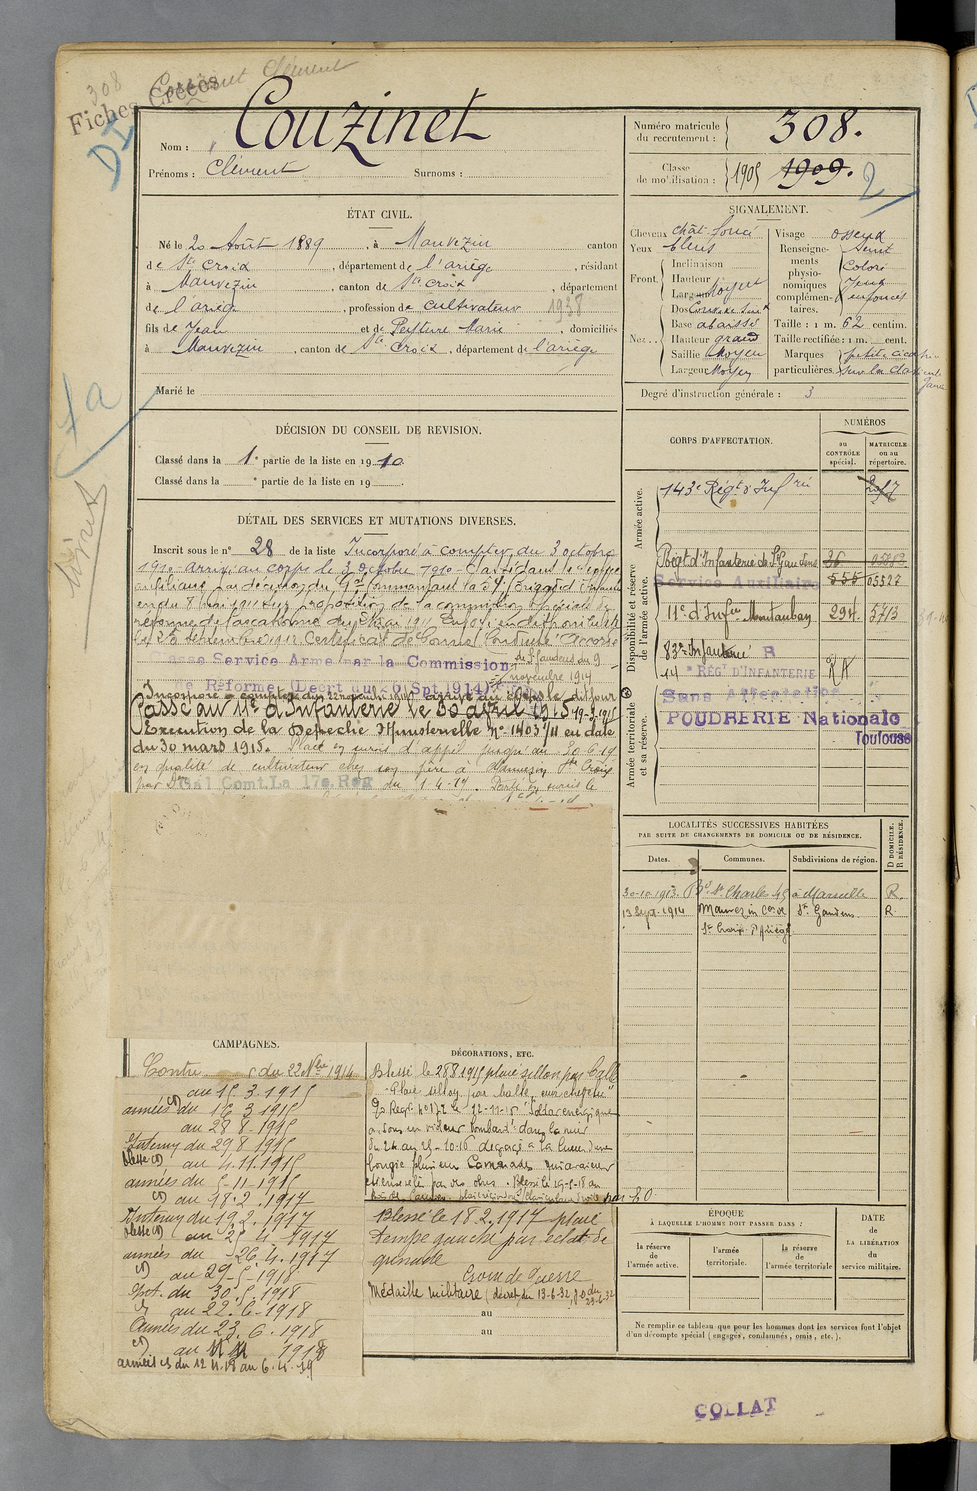 308
Clément
Fiches Créées
Couzinet
Nom :
Prénoms : Clément Surnoms :
Numéro matricule
du recrutement : 308.
Classe
de mobilisation : 1909.
ÉTAT CIVIL.
Né le 20 Août 1889, à Mauvezin canton
de Ste Croix, département de l'ariège, résidant
à Mauvezin, canton de Ste Croix, département
de l'ariège, profession de cultivateur 1938
fils de Jean et de Marie, domiciliés
à Mauvezin, canton de Ste Croix, département de l'ariège
Marié le
SIGNALEMENT.
Cheveux chât. foncé
Yeux bleus
Front.
Inclinaison
Hauteur
Largeur Moyen
Nez..
Dos
Base abaissé
Hauteur grand
Saillie Moyen
Largeur Moyen
Visage osseux
Renseignements physionomiques complémentaires.
Coloré
Yeux
enfoncés
Taille : 1 m. 62 centim.
Taille rectifiée : 1 m. cent.
Marques particulières. petite
sur la
Degré d'instruction générale : 3
DÉCISION DU CONSEIL DE REVISION.
Classé dans la 1e partie de la liste en 1910.
Classé dans la e partie de la liste en 19 .
DÉTAIL DES SERVICES ET MUTATIONS DIVERSES.
Inscrit sous le n° 28 de la liste Incorporé à compter du 3 octobre
1910. Arrivé au corps le 3 Octobre 1910. Classé dans le service
auxiliaire par décision du Gal Commandant la
en du 8 mai 1911 sur proposition de la commission spéciale de
réforme de Carcassonne du Mai 1911. Envoyé en disponibilité
le 25 septembre 1912. Certificat de bonne conduite Accordé
Classé Service Armé par la Commission
de St Gaudens du 9
novembre 1914
de Réforme (Décret du 26 Spt 1914)
Passé au 11e d'Infanterie le 30 avril 1915
Execution de la Depeche Ministerielle N° 1403/11 en date
du 30 mars 1915. Placé en sursis d'appel jusqu'au 30-6-19
en qualité de cultivateur chez son père à Mauvezin Ste Croix
par Don Gal Comt. La 17e. Reg du 1-4-19.
CORPS D'AFFECTATION.
NUMÉROS
au
CONTRÔLE
spécial.
MATRICULE
ou au
répertoire.
Armée active.
143e Régt d'Infrie
Disponibilité et réserve
de l'armée active.
Régt d'Infanterie de St Gaudens 36
Service Auxiliaire 03527
11e d'Infrie Montauban 294 5713
83e Infanterie R
14e RÉGt D'INFANTERIE RA
Sans Affectation
Armée territoriale
et sa réserve.
POUDRERIE Nationale
Toulouse
LOCALITÉS SUCCESSIVES HABITÉES
PAR SUITE DE CHANGEMENTS DE DOMICILE OU DE RÉSIDENCE.
Dates. Communes. Subdivisions de région.
D DOMICILE.
R RÉSIDENCE.
30-10-1913. Bd St Charles 45 à Marseille R.
13 Sept. 1914 Mauvezin Con de St Gaudens. R.
Ste Croix d'Ariège
CAMPAGNES.
Contre du 22 Nbre 1914
au 15.3.1915
armées du 16 3 1915
au 28 8 1915
Intérieur du 29 8 1915
blessé au 4.11.1915
armées du 5-11-1915
au 18.2.1917
Intérieur du 19 2.1917
blessé au 25 4 1917
armées du 26.4.1917
au 29-5-1918
Int. du 30.5.1918
au 22.6-1918
Armées du 23.6.1918
au 11 11 1918
armées du 12 11.18 au 6.4.19
DÉCORATIONS, ETC.
Blessé le 28 8 1915 plaie sillon par balle
Do Regt n° 172 du 12-11-15 "Soldat énergique
a, sous un violent bombardt dans la nuit
du 24 au 25-10-16 dégagé à la lueur d'une
bougie plusieurs Camarades qui avaient
été ensevelis par des obus. Blessé le 29-5-18 au
Blessé le 18 2.1917 plaie
tempe gauche par éclat de
grenade
Croix de Guerre
Médaille militaire (décret du 13-6-32, J.O. du
29-6-32
au
au
ÉPOQUE
À LAQUELLE L'HOMME DOIT PASSER DANS :
la réserve
de l'armée active.
l'armée
territoriale.
la réserve
de l'armée territoriale
DATE
de
LA LIBÉRATION
du
service militaire.
Ne remplir ce tableau que pour les hommes dont les services font l'objet
d'un décompte spécial (engagés, condamnés, omis, etc.).
COLLAT